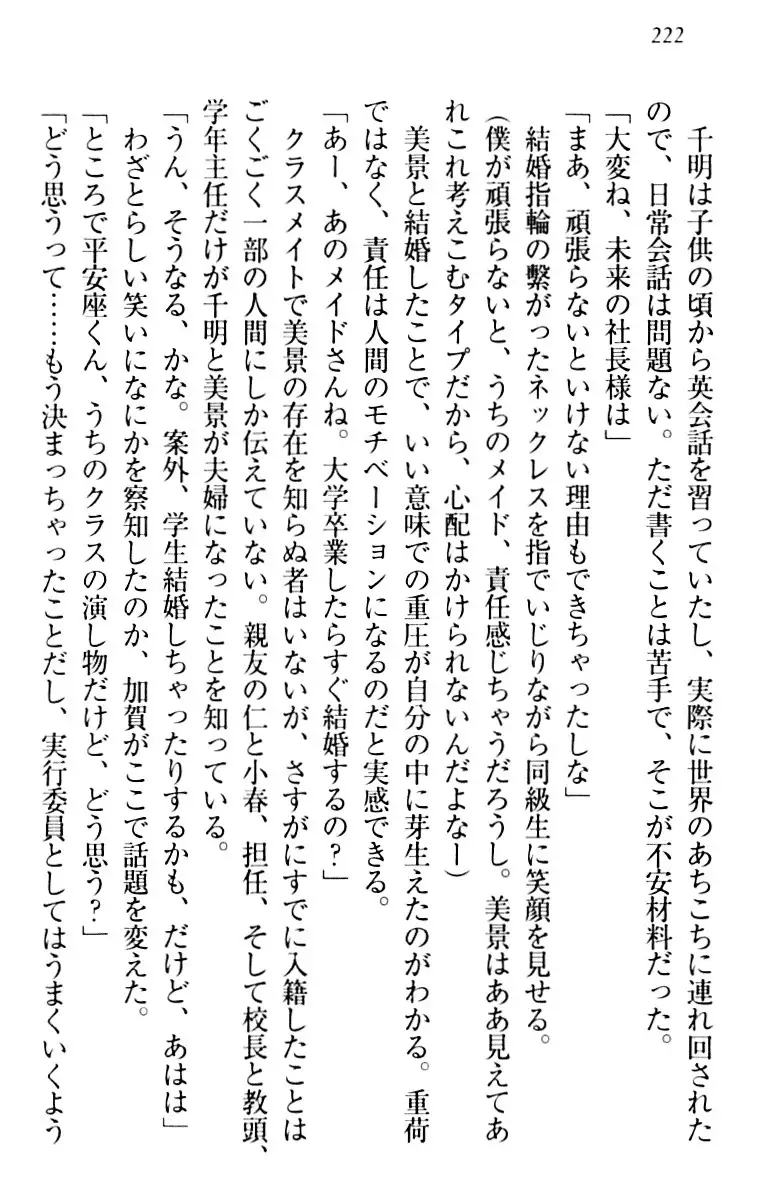 222
千明は子供の頃から英会話を習っていたし、実際に世界のあちこちに連れ回された
ので、日常会話は問題ない。ただ書くことは苦手で、そこが不安材料だった。
「大変ね、未来の社長様は」
「まあ、頑張らないといけない理由もできちゃったしな」
結婚指輪の繋がったネックレスを指でいじりながら同級生に笑顔を見せる。
(僕が頑張らないと、うちのメイド、責任感じちゃうだろうし。美景はああ見えてあ
れこれ考えこむタイプだから、心配はかけられないんだよなー)
美景と結婚したことで、いい意味での重圧が自分の中に芽生えたのがわかる。重荷
ではなく、責任は人間のモチベーションになるのだと実感できる。
「あー、あのメイドさんね。大学卒業したらすぐ結婚するの?」
クラスメイトで美景の存在を知らぬ者はいないが、さすがにすでに入籍したことは
ごくごく一部の人間にしか伝えていない。親友の仁と小春、担任、そして校長と教頭、
学年主任だけが千明と美景が夫婦になったことを知っている。
「うん、そうなる、かな。案外、学生結婚しちゃったりするかも、だけど、あはは」
わざとらしい笑いになにかを察知したのか、加賀がここで話題を変えた。
「ところで平安座くん、うちのクラスの演し物だけど、どう思う?」
「どう思うって……もう決まっちゃったことだし、実行委員としてはうまくいくよう